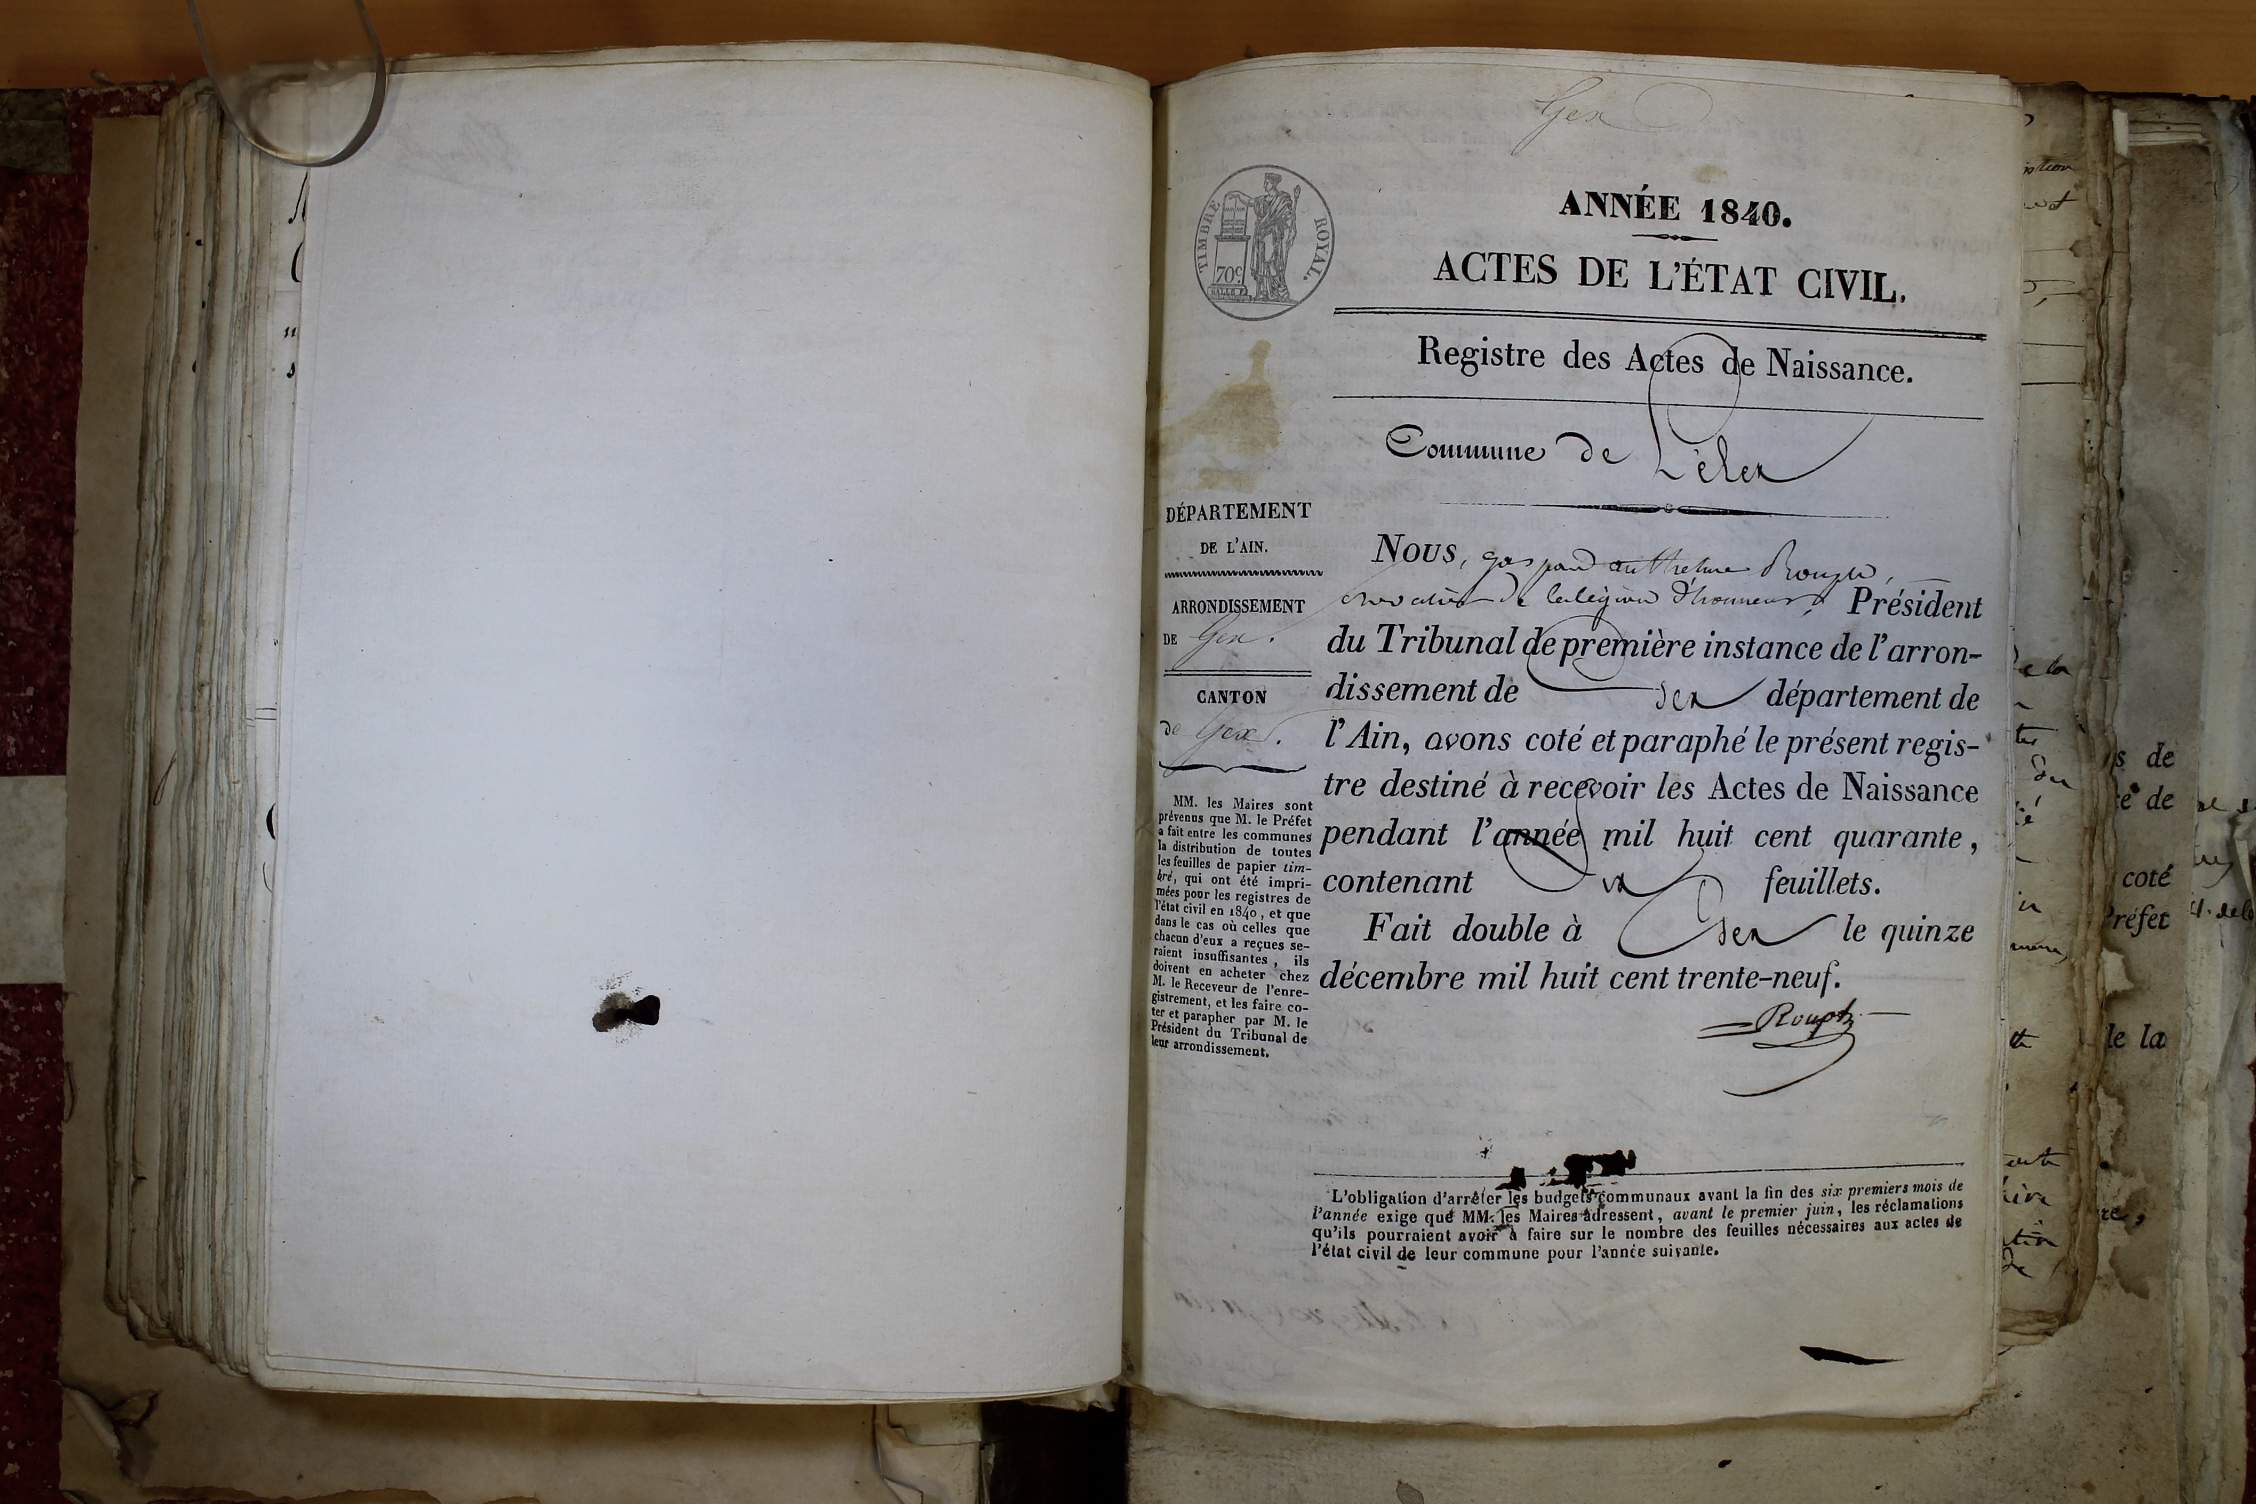 Gex
ANNÉE 1840.
ACTES DE L'ÉTAT CIVIL.
TIMBRE ROYAL.
70c.
Registre des Actes de Naissance.
Commune de Lélex
DÉPARTEMENT
DE L'AIN.
ARRONDISSEMENT
DE Gex.
CANTON
de Gex.
MM. les Maires sont
prévenus que M. le Préfet
a fait entre les communes
la distribution de toutes
les feuilles de papier tim-
bré, qui ont été impri-
mées pour les registres de
l'état civil en 1840, et que
dans le cas où celles que
chacun d'eux a reçues se-
raient insuffisantes, ils
doivent en acheter chez
M. le Receveur de l'enre-
gistrement, et les faire co-
ter et parapher par M. le
Président du Tribunal de
leur arrondissement.
Nous, gaspard anthelme
chevalier de la légion d'honneur, Président
du Tribunal de première instance de l'arron-
dissement de Gex département de
l'Ain, avons coté et paraphé le présent regis-
tre destiné à recevoir les Actes de Naissance
pendant l'année mil huit cent quarante,
contenant feuillets.
Fait double à Gex le quinze
décembre mil huit cent trente-neuf.
L'obligation d'arrêter les budgets communaux avant la fin des six premiers mois de
l'année exige que MM. les Maires adressent, avant le premier juin, les réclamations
qu'ils pourraient avoir à faire sur le nombre des feuilles nécessaires aux actes de
l'état civil de leur commune pour l'année suivante.
de
de
coté
Préfet
de la